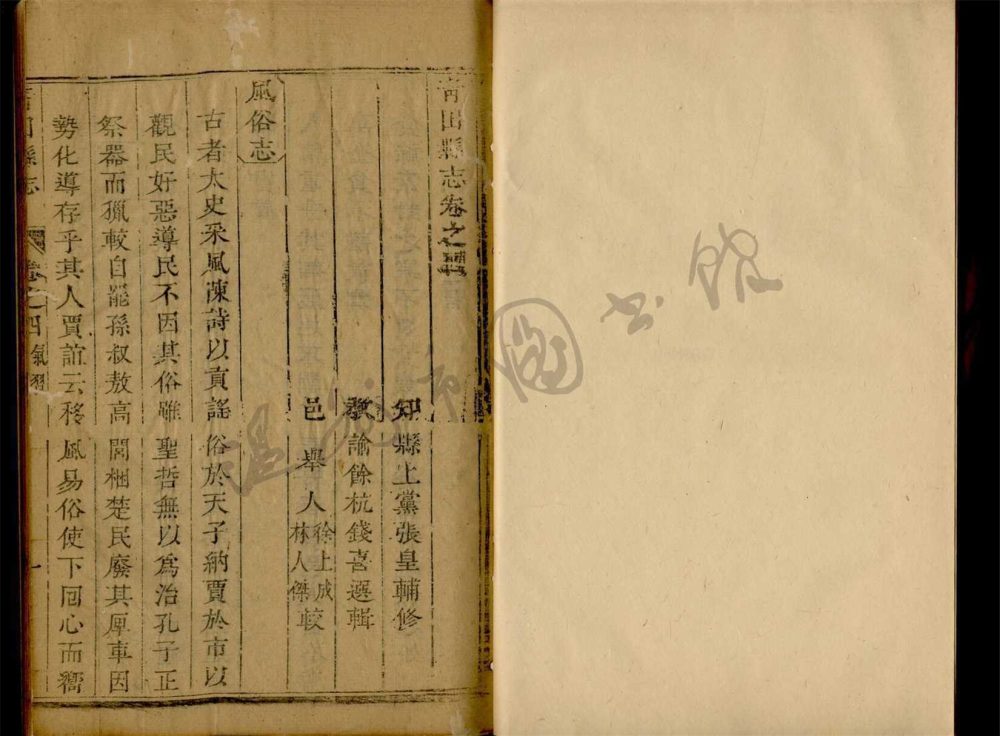 青田縣志卷之四
知縣上黨張皇輔修
教諭餘杭錢喜選輯
邑舉人徐上成林人傑較
風俗志
古者太史采風陳詩以貢謠俗於天子納賈於市以
觀民好惡導民不因其俗雖聖哲無以為治孔子正
祭器而獵較自罷孫叔敖高閭梱楚民廢其庳車因
勢化導存乎其人賈誼云移風易俗使下囘心而嚮
青田縣志 卷之四 一
圖書館